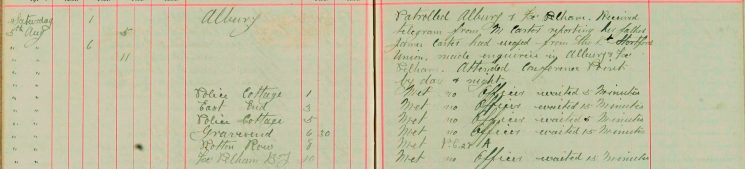 Saturday 1 Albury Patrolled Albury & Fx Pelham. Received
5th Aug 5 telegram from M Carter reporting her father
" " 6 James Carter had from the Bp Stortford
" " 11 Union, made enquiries in Albury & Fx
" " Pelham. Attended Conference Point
" " by day & night
" " Police Cottage 1 Met no Officer waited 5 Minutes
" " East End 3 Met no Officer waited 15 Minutes
" " Police Cottage 5 Met no Officer waited 5 Minutes
" " Gravesend 6 30 Met no Officer waited 15 Minutes
" " Rotton Row 8 Met P.C. 28 A
" " Fx Pelham 10 Met no Officer waited 15 Minutes